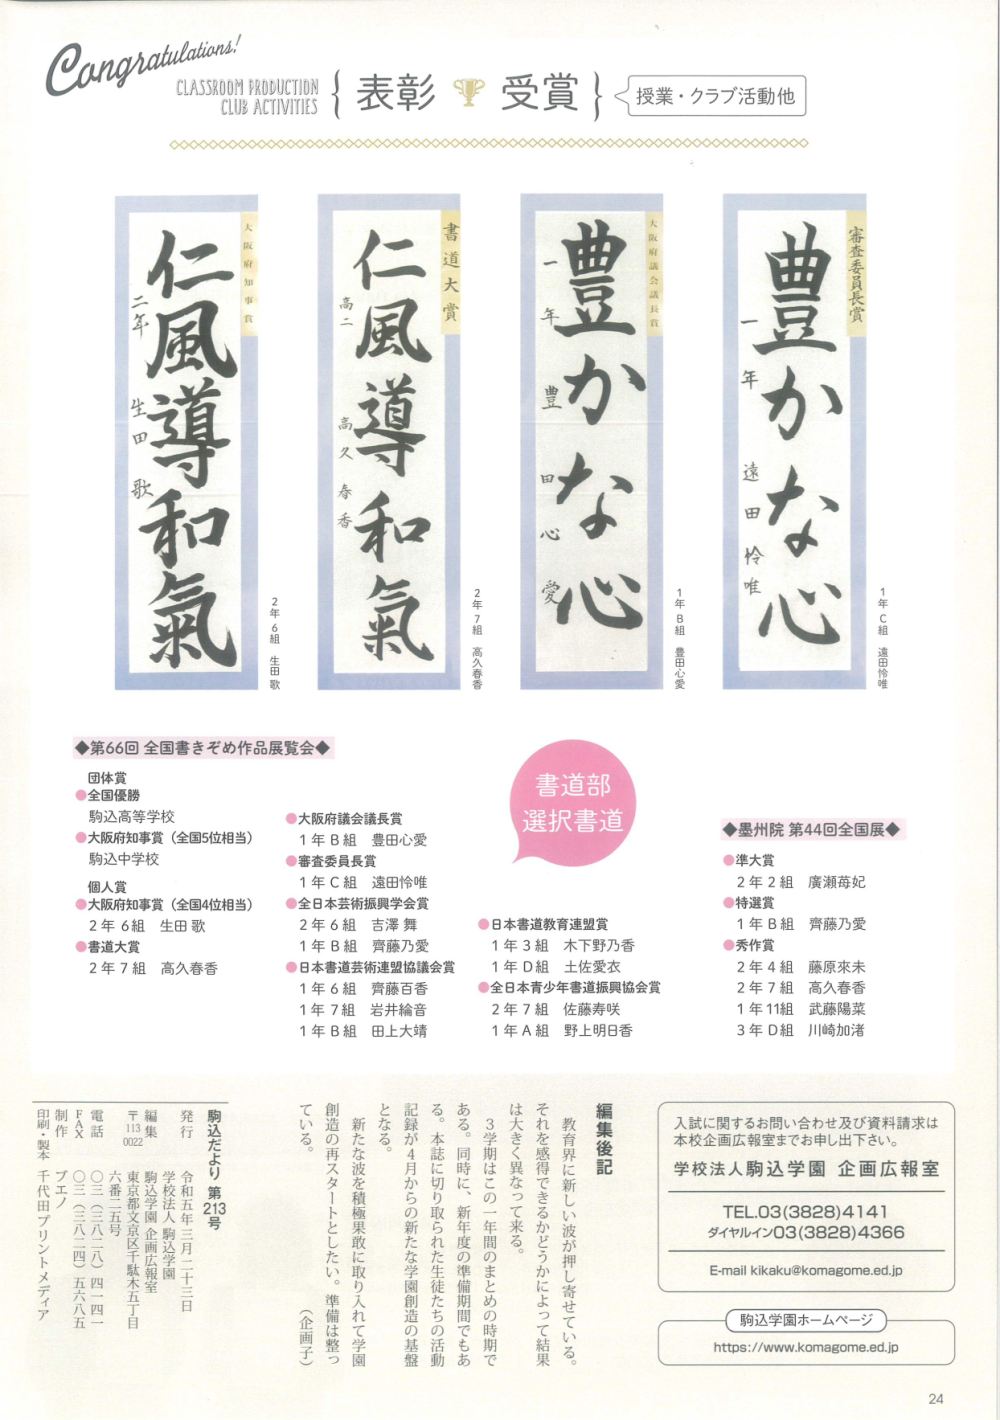 Congratulations!
CLASSROOM PRODUCTION
CLUB ACTIVITIES
表彰 受賞
授業・クラブ活動他
大阪府知事賞
仁風導和氣
二年 生田 歌
2年6組 生田 歌
書道大賞
仁風導和氣
高二 高久春香
2年7組 高久春香
大阪府議会議長賞
豊かな心
一年 豊田心愛
1年B組 豊田心愛
審査委員長賞
豊かな心
一年 遠田怜唯
1年C組 遠田怜唯
◆第66回 全国書きぞめ作品展覧会◆
団体賞
●全国優勝
駒込高等学校
●大阪府知事賞（全国5位相当）
駒込中学校
個人賞
●大阪府知事賞（全国4位相当）
2年 6組 生田 歌
●書道大賞
2年7組 高久春香
●大阪府議会議長賞
1年B組 豊田心愛
●審査委員長賞
1年C組 遠田怜唯
●全日本芸術振興学会賞
2年6組 吉澤 舞
1年B組 齊藤乃愛
●日本書道芸術連盟協議会賞
1年6組 齊藤百香
1年7組 岩井綸音
1年B組 田上大靖
書道部
選択書道
●日本書道教育連盟賞
1年3組 木下野乃香
1年D組 土佐愛衣
●全日本青少年書道振興協会賞
2年7組 佐藤寿咲
1年A組 野上明日香
◆墨州院 第44回全国展◆
●準大賞
2年2組 廣瀬苺妃
●特選賞
1年B組 齊藤乃愛
●秀作賞
2年4組 藤原來未
2年7組 高久春香
1年11組 武藤陽菜
3年D組 川崎加渚
編集後記
教育界に新しい波が押し寄せている。
それを感得できるかどうかによって結果
は大きく異なって来る。
3学期はこの一年間のまとめの時期で
ある。同時に、新年度の準備期間でもあ
る。本誌に切り取られた生徒たちの活動
記録が4月からの新たな学園創造の基盤
となる。
新たな波を積極果敢に取り入れて学園
創造の再スタートとしたい。準備は整っ
ている。
（企画子）
駒込だより 第213号
発行 令和五年三月二十三日
学校法人 駒込学園
編集 駒込学園 企画広報室
〒113-0022 東京都文京区千駄木五丁目
六番二五号
電話 〇三（三八二八）四一四一
FAX 〇三（三八二四）五六八五
制作 ブエノ
印刷・製本 千代田プリントメディア
入試に関するお問い合わせ及び資料請求は
本校企画広報室までお申し出下さい。
学校法人駒込学園 企画広報室
TEL.03(3828)4141
ダイヤルイン03(3828)4366
E-mail kikaku@komagome.ed.jp
駒込学園ホームページ
https://www.komagome.ed.jp
24